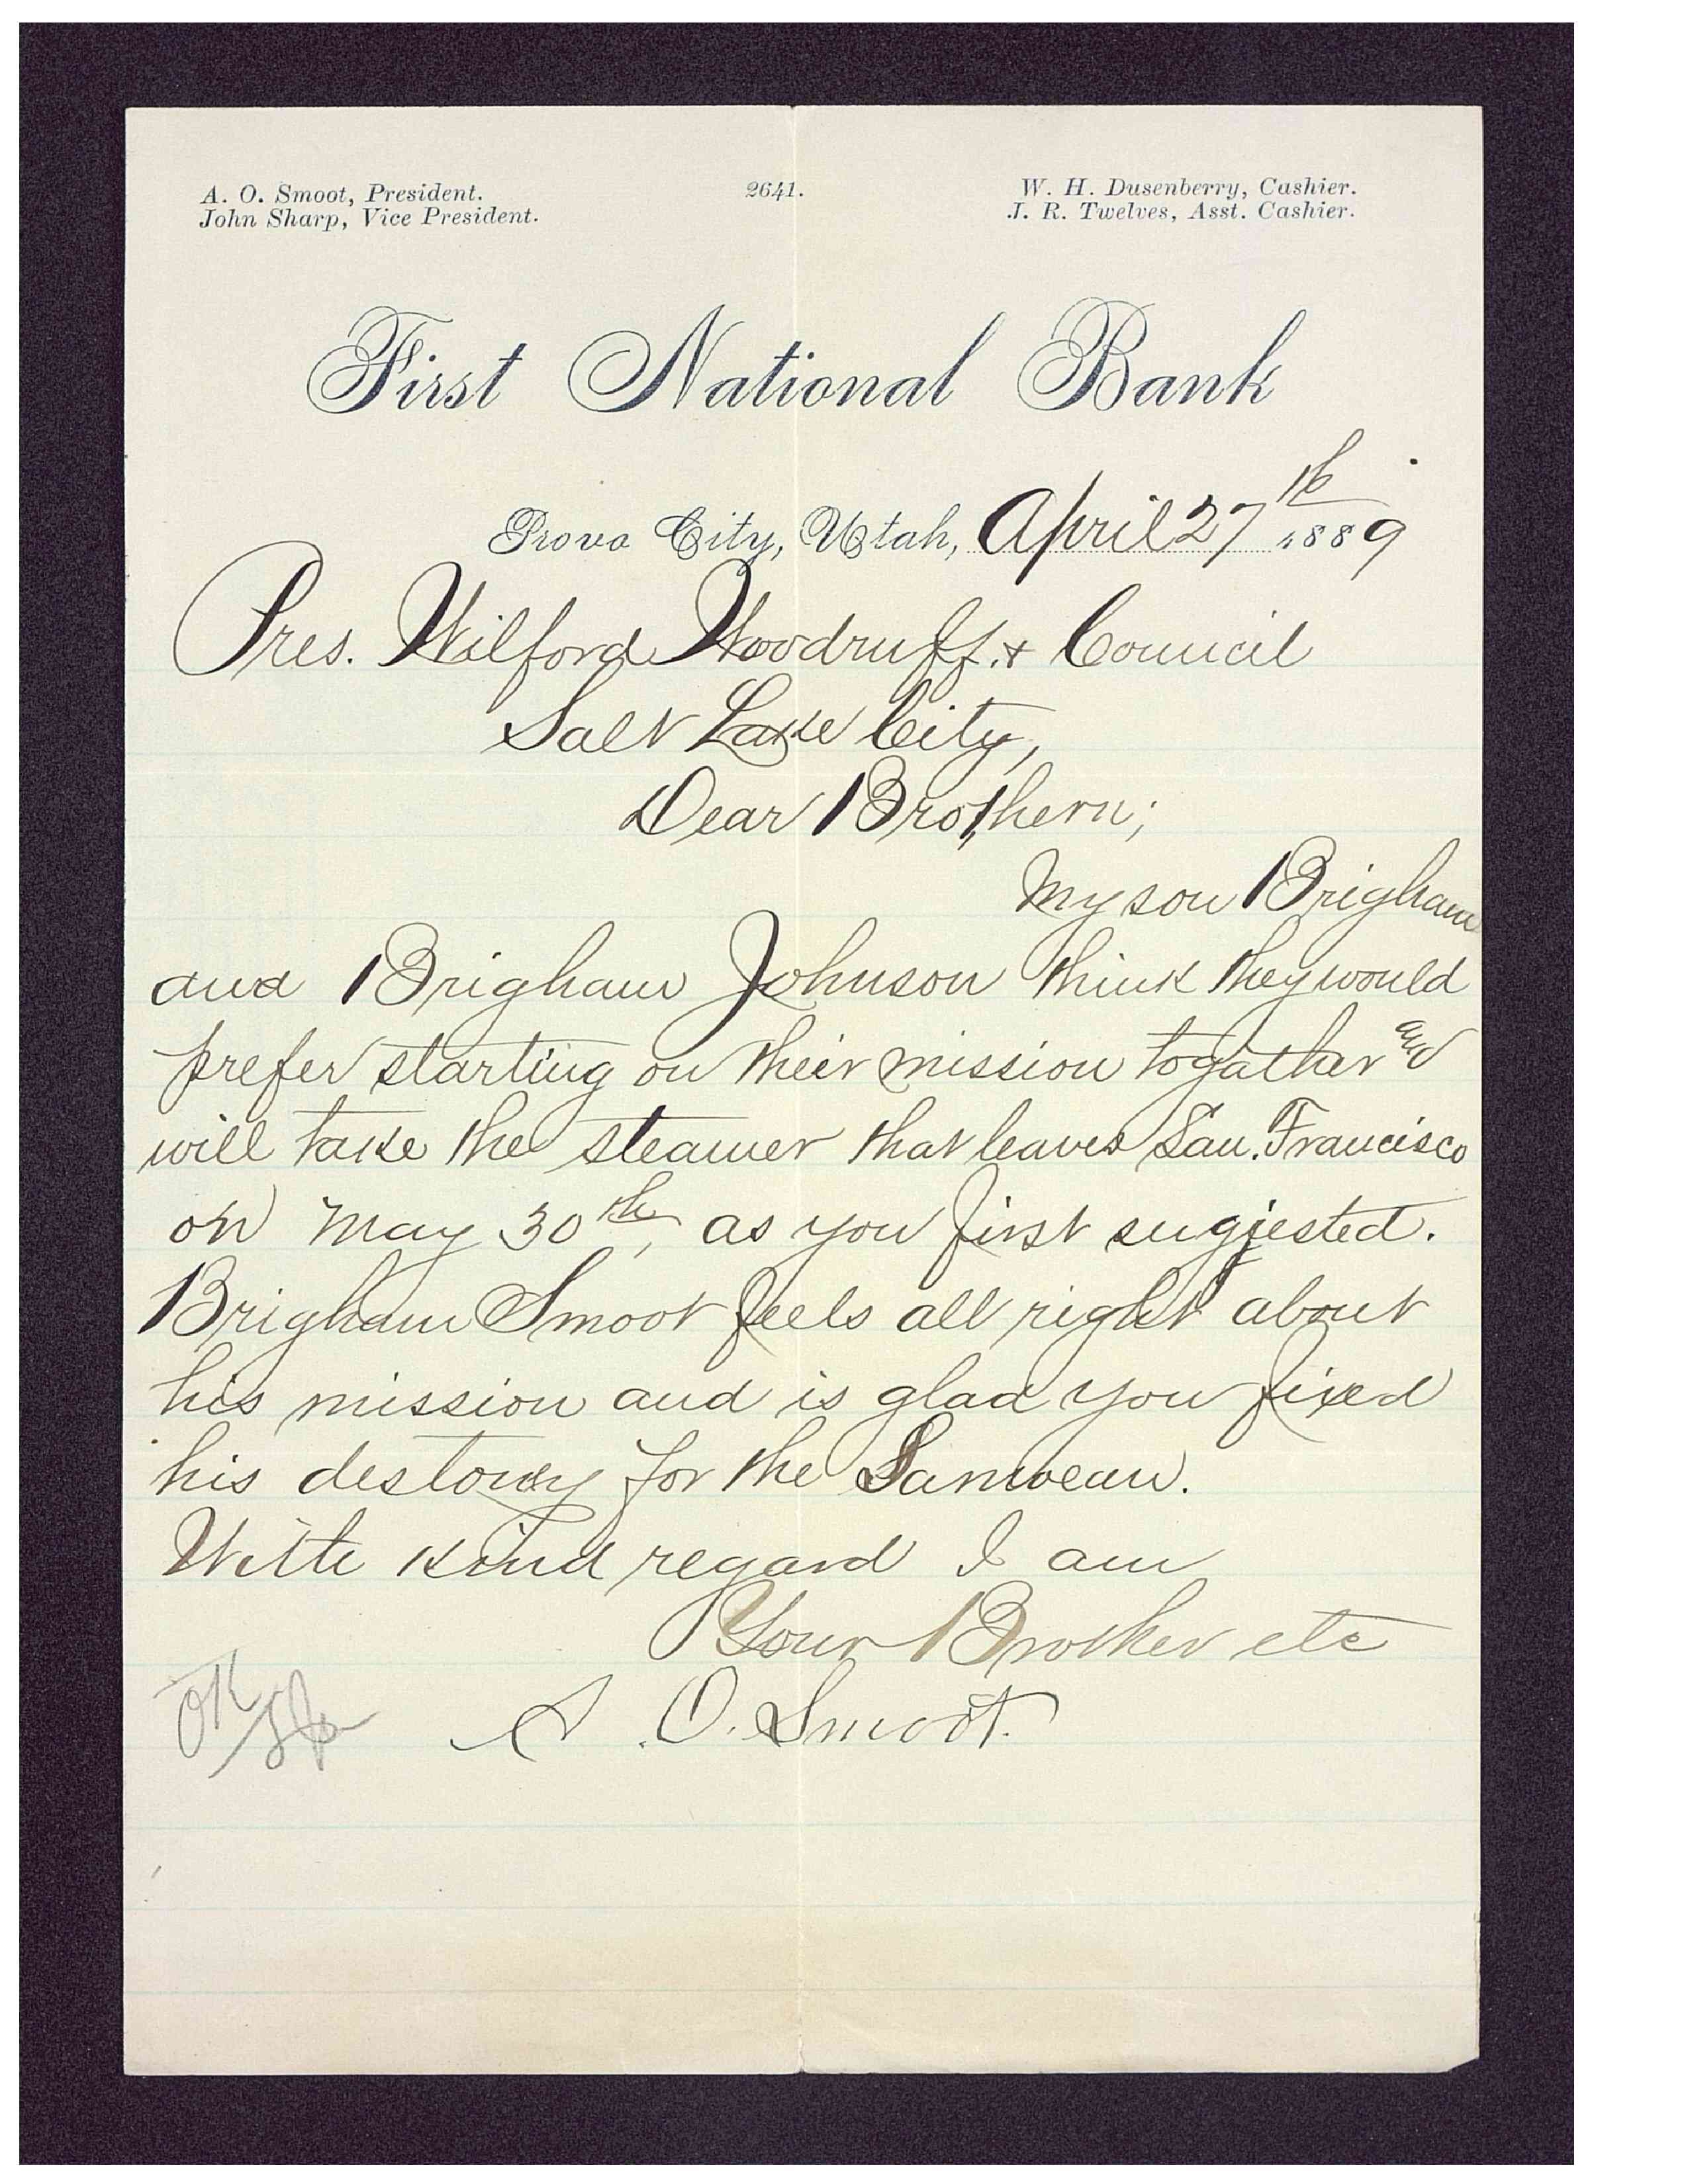 A. O. Smoot, President.
John Sharp, Vice President.
2641.
W. H. Dusenberry, Cashier.
J. R. Twelves, Asst. Cashier.
First National Bank
Provo City, Utah, April 27th 1889
Pres. Wilford Woodruff & Council
Salt Lake City,
Dear Brothern;
My son Brigham
and Brigham Johnson think they would
prefer starting on their mission togather and
will take the steamer that leaves San. Francisco
on May 30th, as you first sugjested.
Brigham Smoot feels all right about
his mission and is glad you fixed
his for the
With kind regard I am
Your Brother etc
A. O. Smoot.
OK